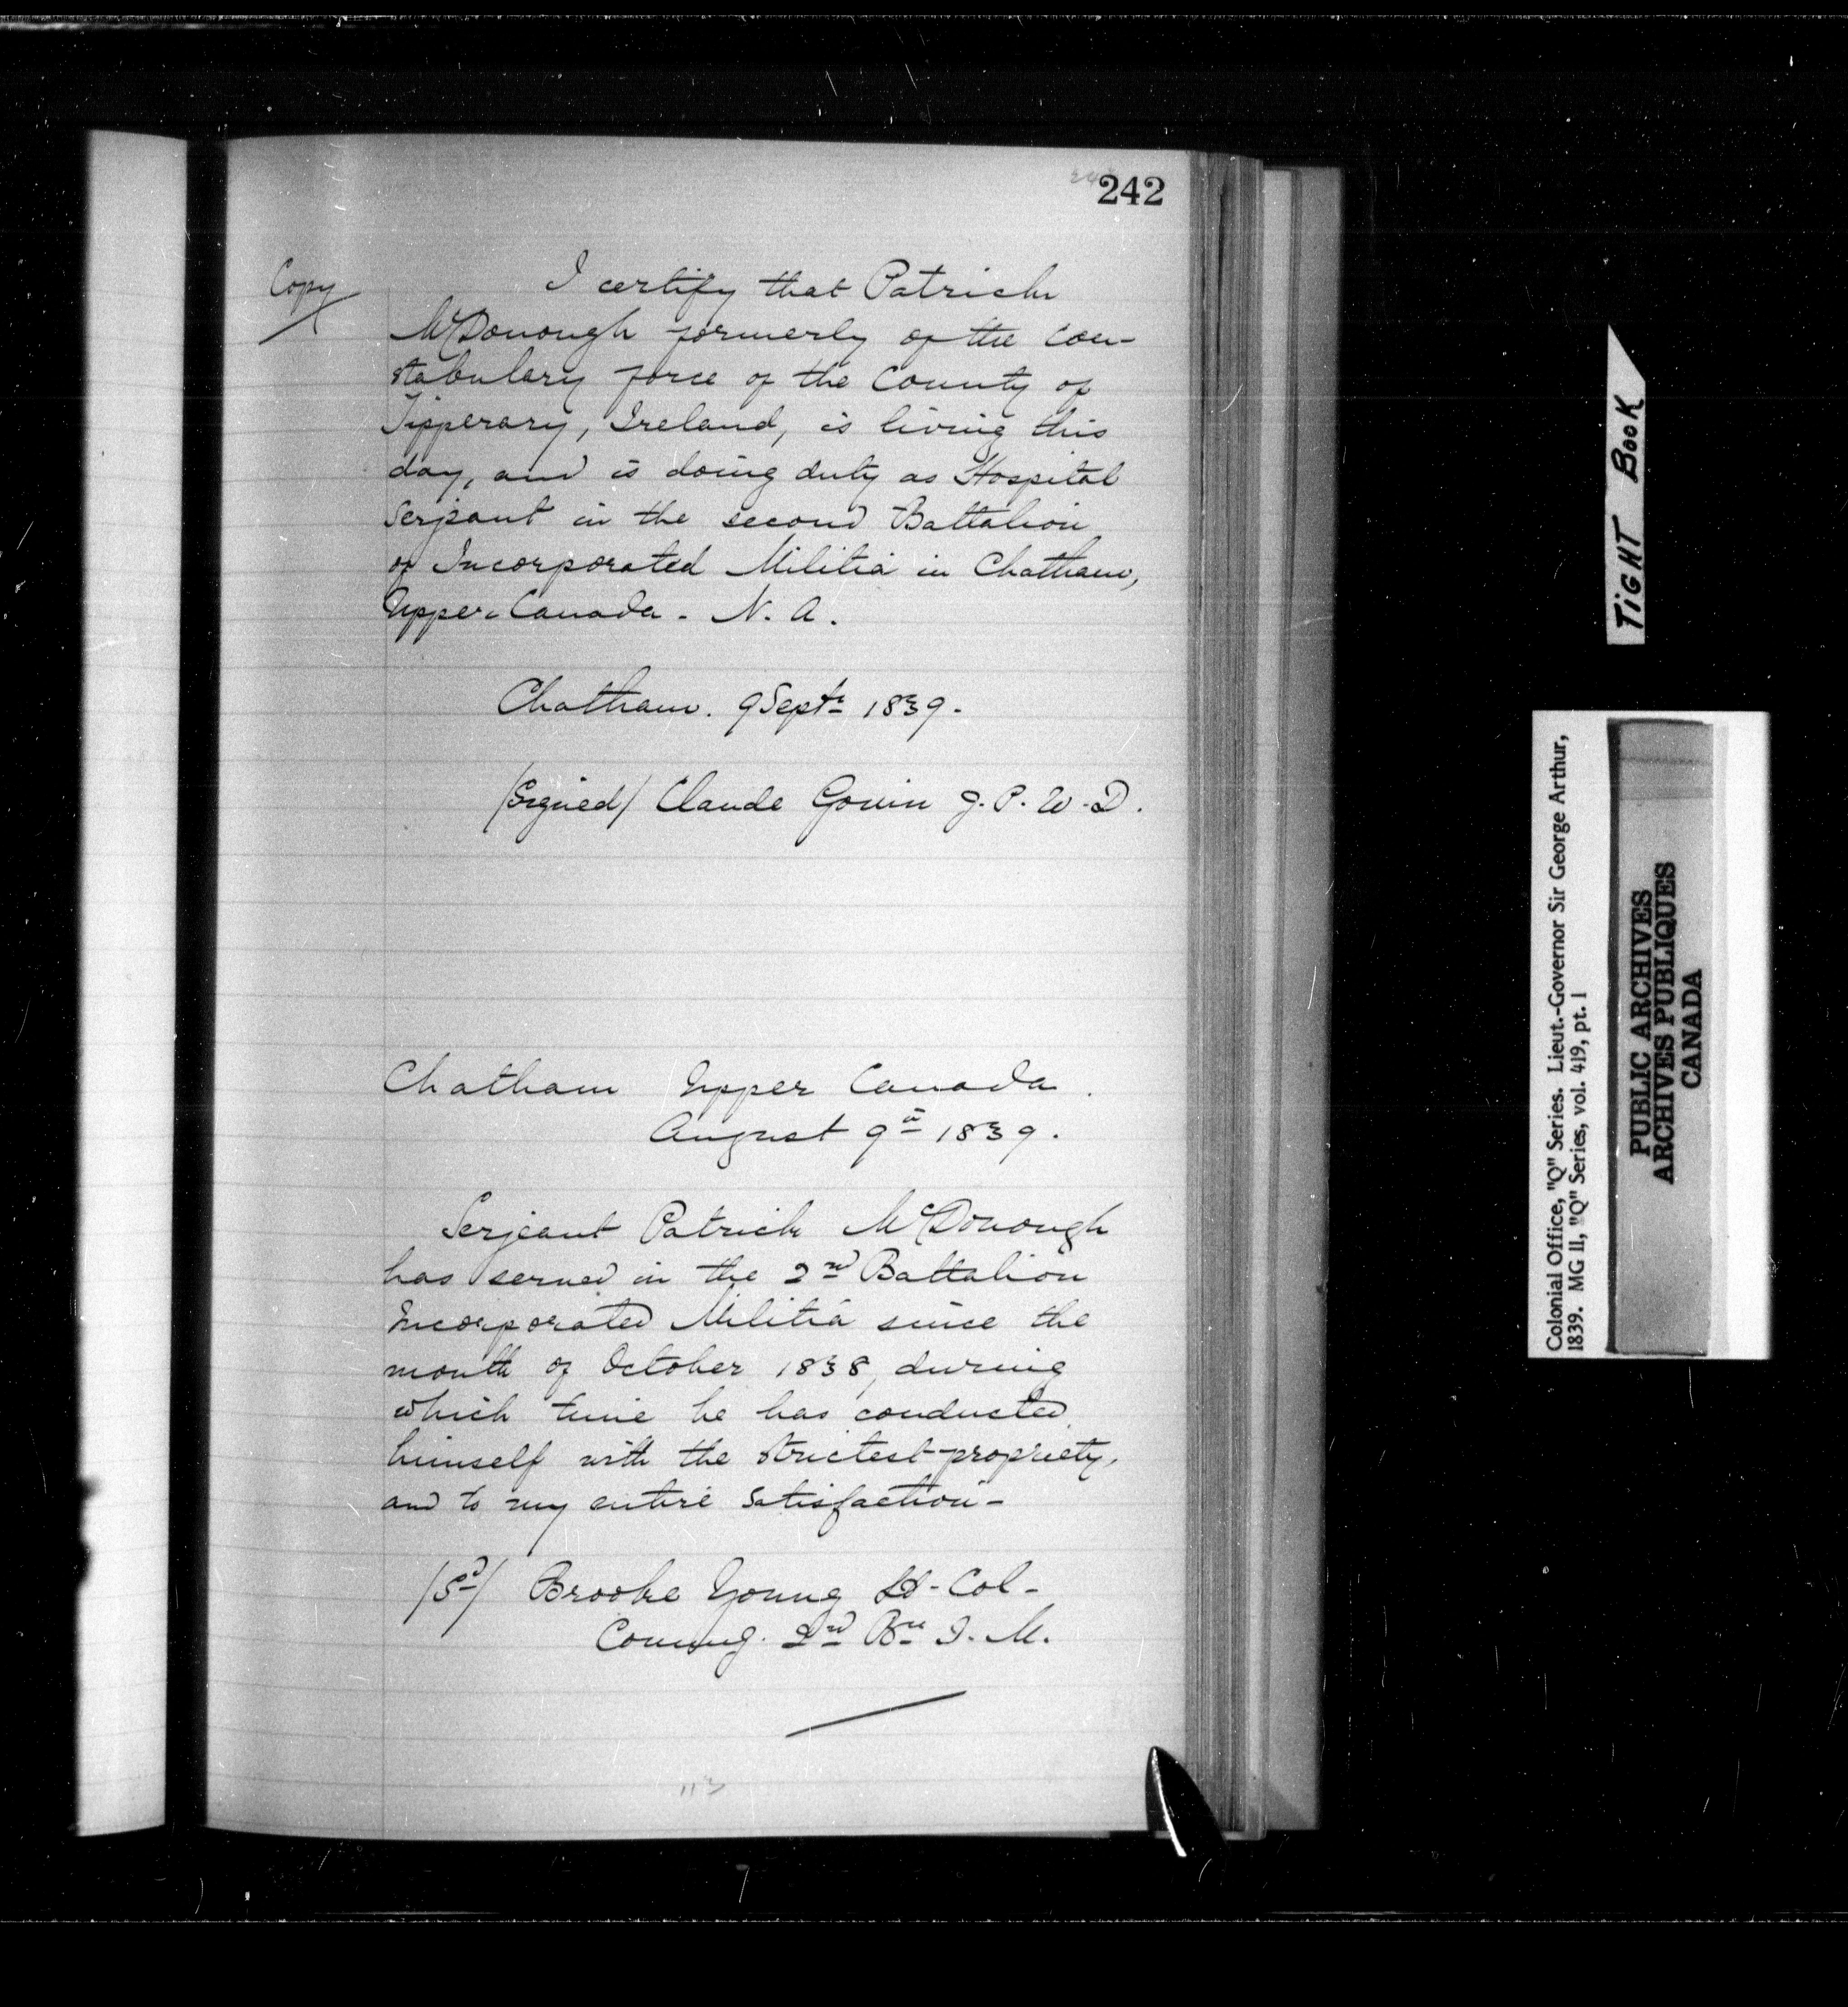 242
Copy
I certify that Patrick
McDonough formerly of the Con-
stabulary force of the County of
Tipperary, Ireland, is living this
day, and is doing duty as Hospital
Serjeant in the second Battalion
of Incorporated Militia in Chatham,
Upper Canada. N. A.
Chatham. 9 Septr 1839.
/Signed/ Claude Gouin J. P. W. D.
Chatham Upper Canada.
August 9th 1839.
Serjeant Patrick McDonough
has served in the 2nd Battalion
Incorporated Militia since the
month of October 1838, during
which time he has conducted
himself with the strictest propriety,
and to my entire satisfaction -
/Sd/ Brooke Young Lt-Col-
Commg. 2nd Bn I. M.
113
TIGHT BOOK
Colonial Office, "Q" Series. Lieut.-Governor Sir George Arthur,
1839. MG 11, "Q" Series, vol. 419, pt. 1
PUBLIC ARCHIVES
ARCHIVES PUBLIQUES
CANADA